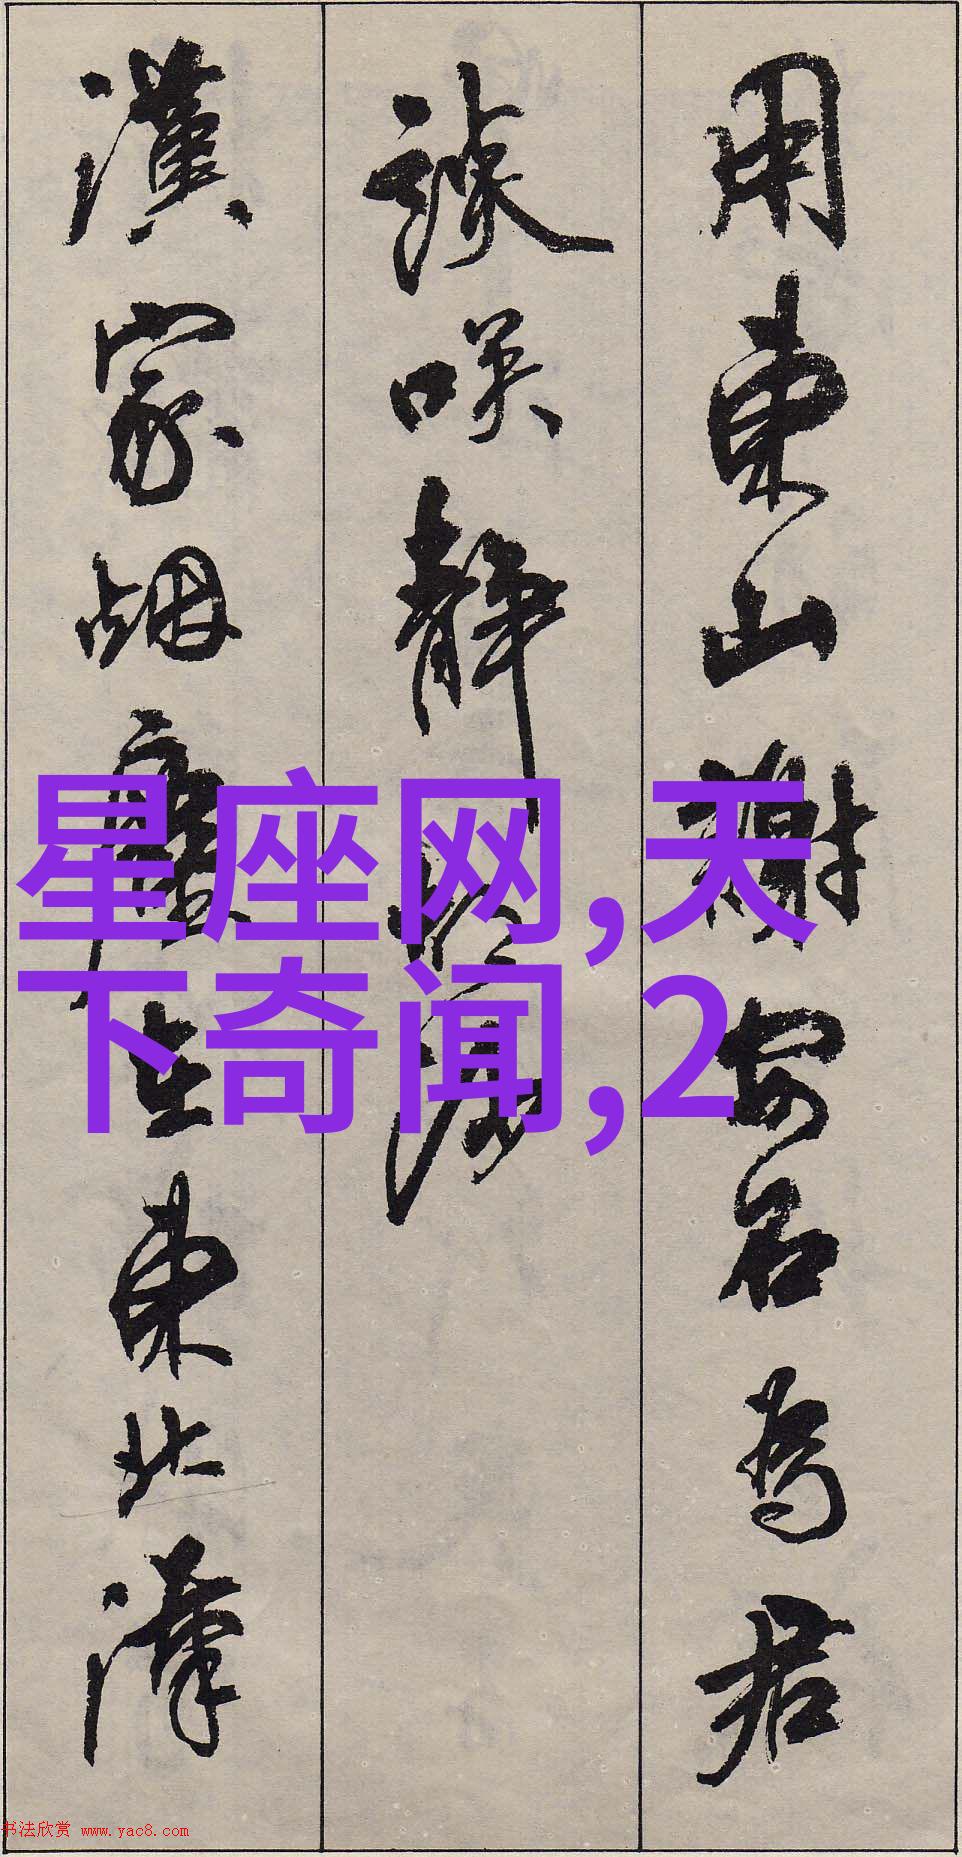 用東山謝安石為君
談咲静胡沙
漢家烟塵在東北漢
星座网,天
下奇闻,2
书法欣赏 www.yac8.com